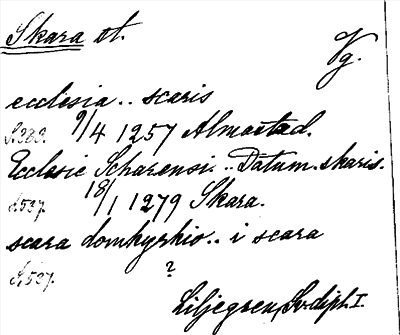 Skara st.
Vg.
ecclesia .. scaris
S.383. 9/4 1257 Almostad.
Ecclesie Scharensi .. Datum skaris.
S.537. 18/1 1279 Skara.
scara domkyrkio .. i scara
S.537. ?
Liljegren, Sv. dipl. I.